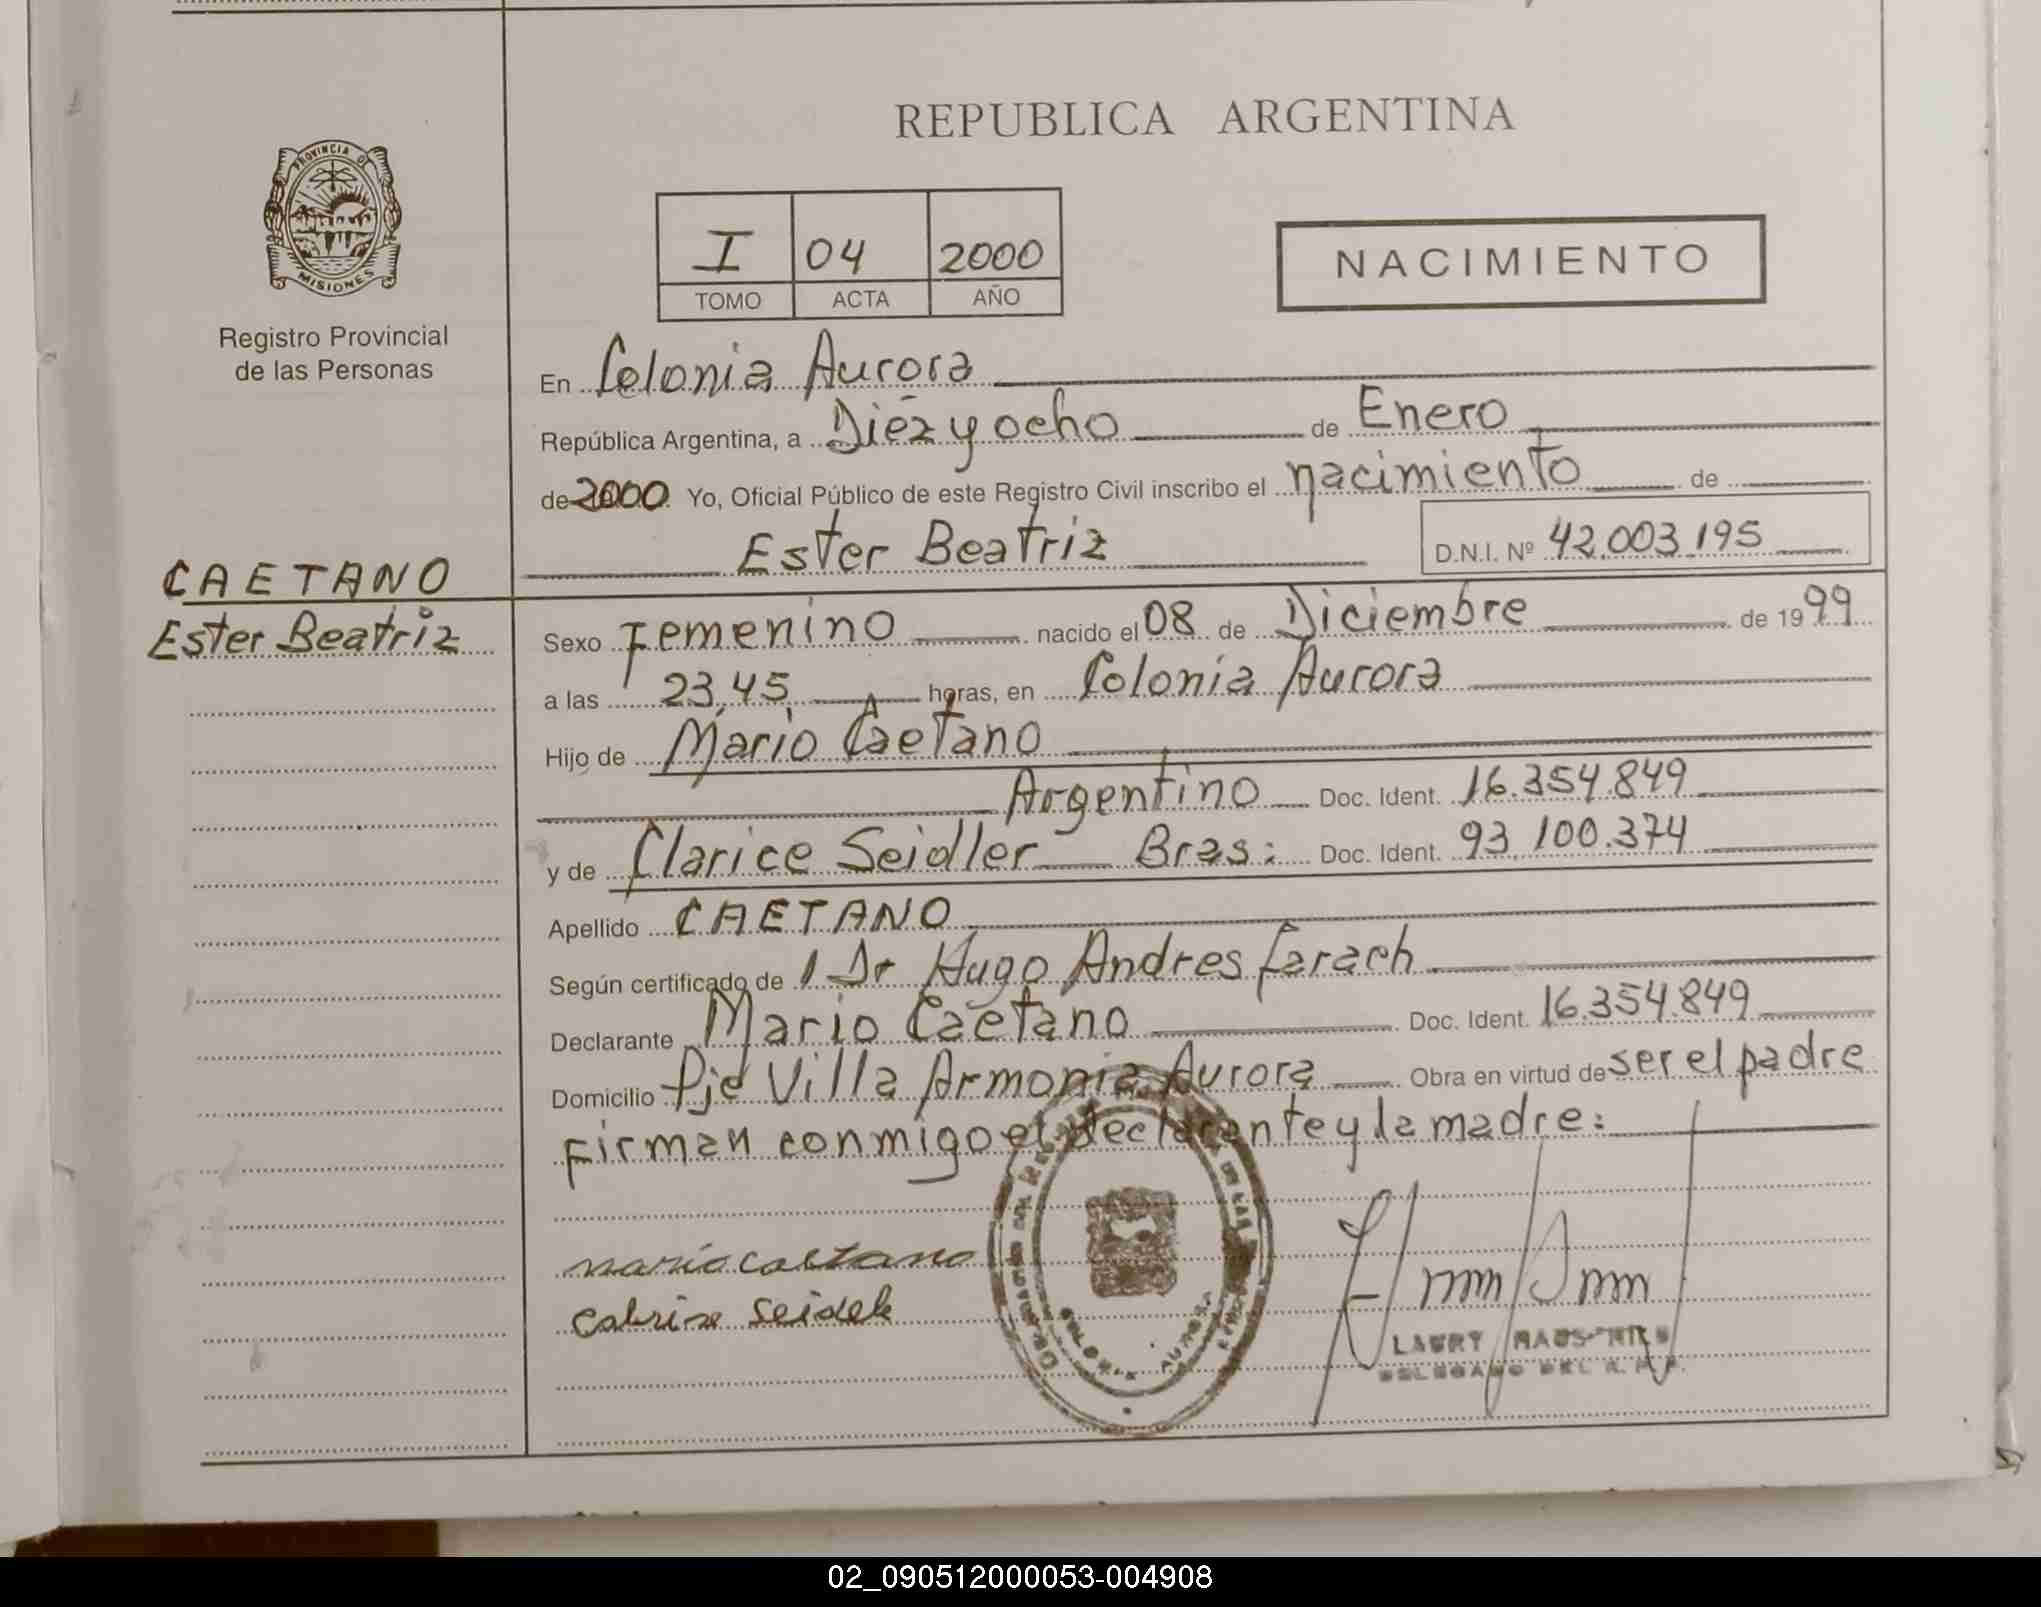 REPUBLICA ARGENTINA
PROVINCIA D
MISIONES
Registro Provincial
de las Personas
I 04 2000
TOMO ACTA AÑO
NACIMIENTO
En Colonia Aurora
República Argentina, a Diéz y ocho de Enero
de 2000 Yo, Oficial Público de este Registro Civil inscribo el nacimiento de
Ester Beatriz D.N.I. Nº 42.003.195
CAETANO
Ester Beatriz
Sexo Femenino nacido el 08 de Diciembre de 1999
a las 23,45, horas, en Colonia Aurora
Hijo de Mario Caetano
Argentino Doc. Ident. 16.354.849
y de Clarice Seidler Bras: Doc. Ident. 93.100.374
Apellido CAETANO
Según certificado de Dr Hugo Andres Farach
Declarante Mario Caetano Doc. Ident. 16.354.849
Domicilio Pje Villa Armonia Aurora Obra en virtud de ser el padre
Firman conmigo el declarante y la madre:
mario caetano
seidel
COLONIA AURORA
LAURY
DELEGADO DEL R.P.P.
02_090512000053-004908